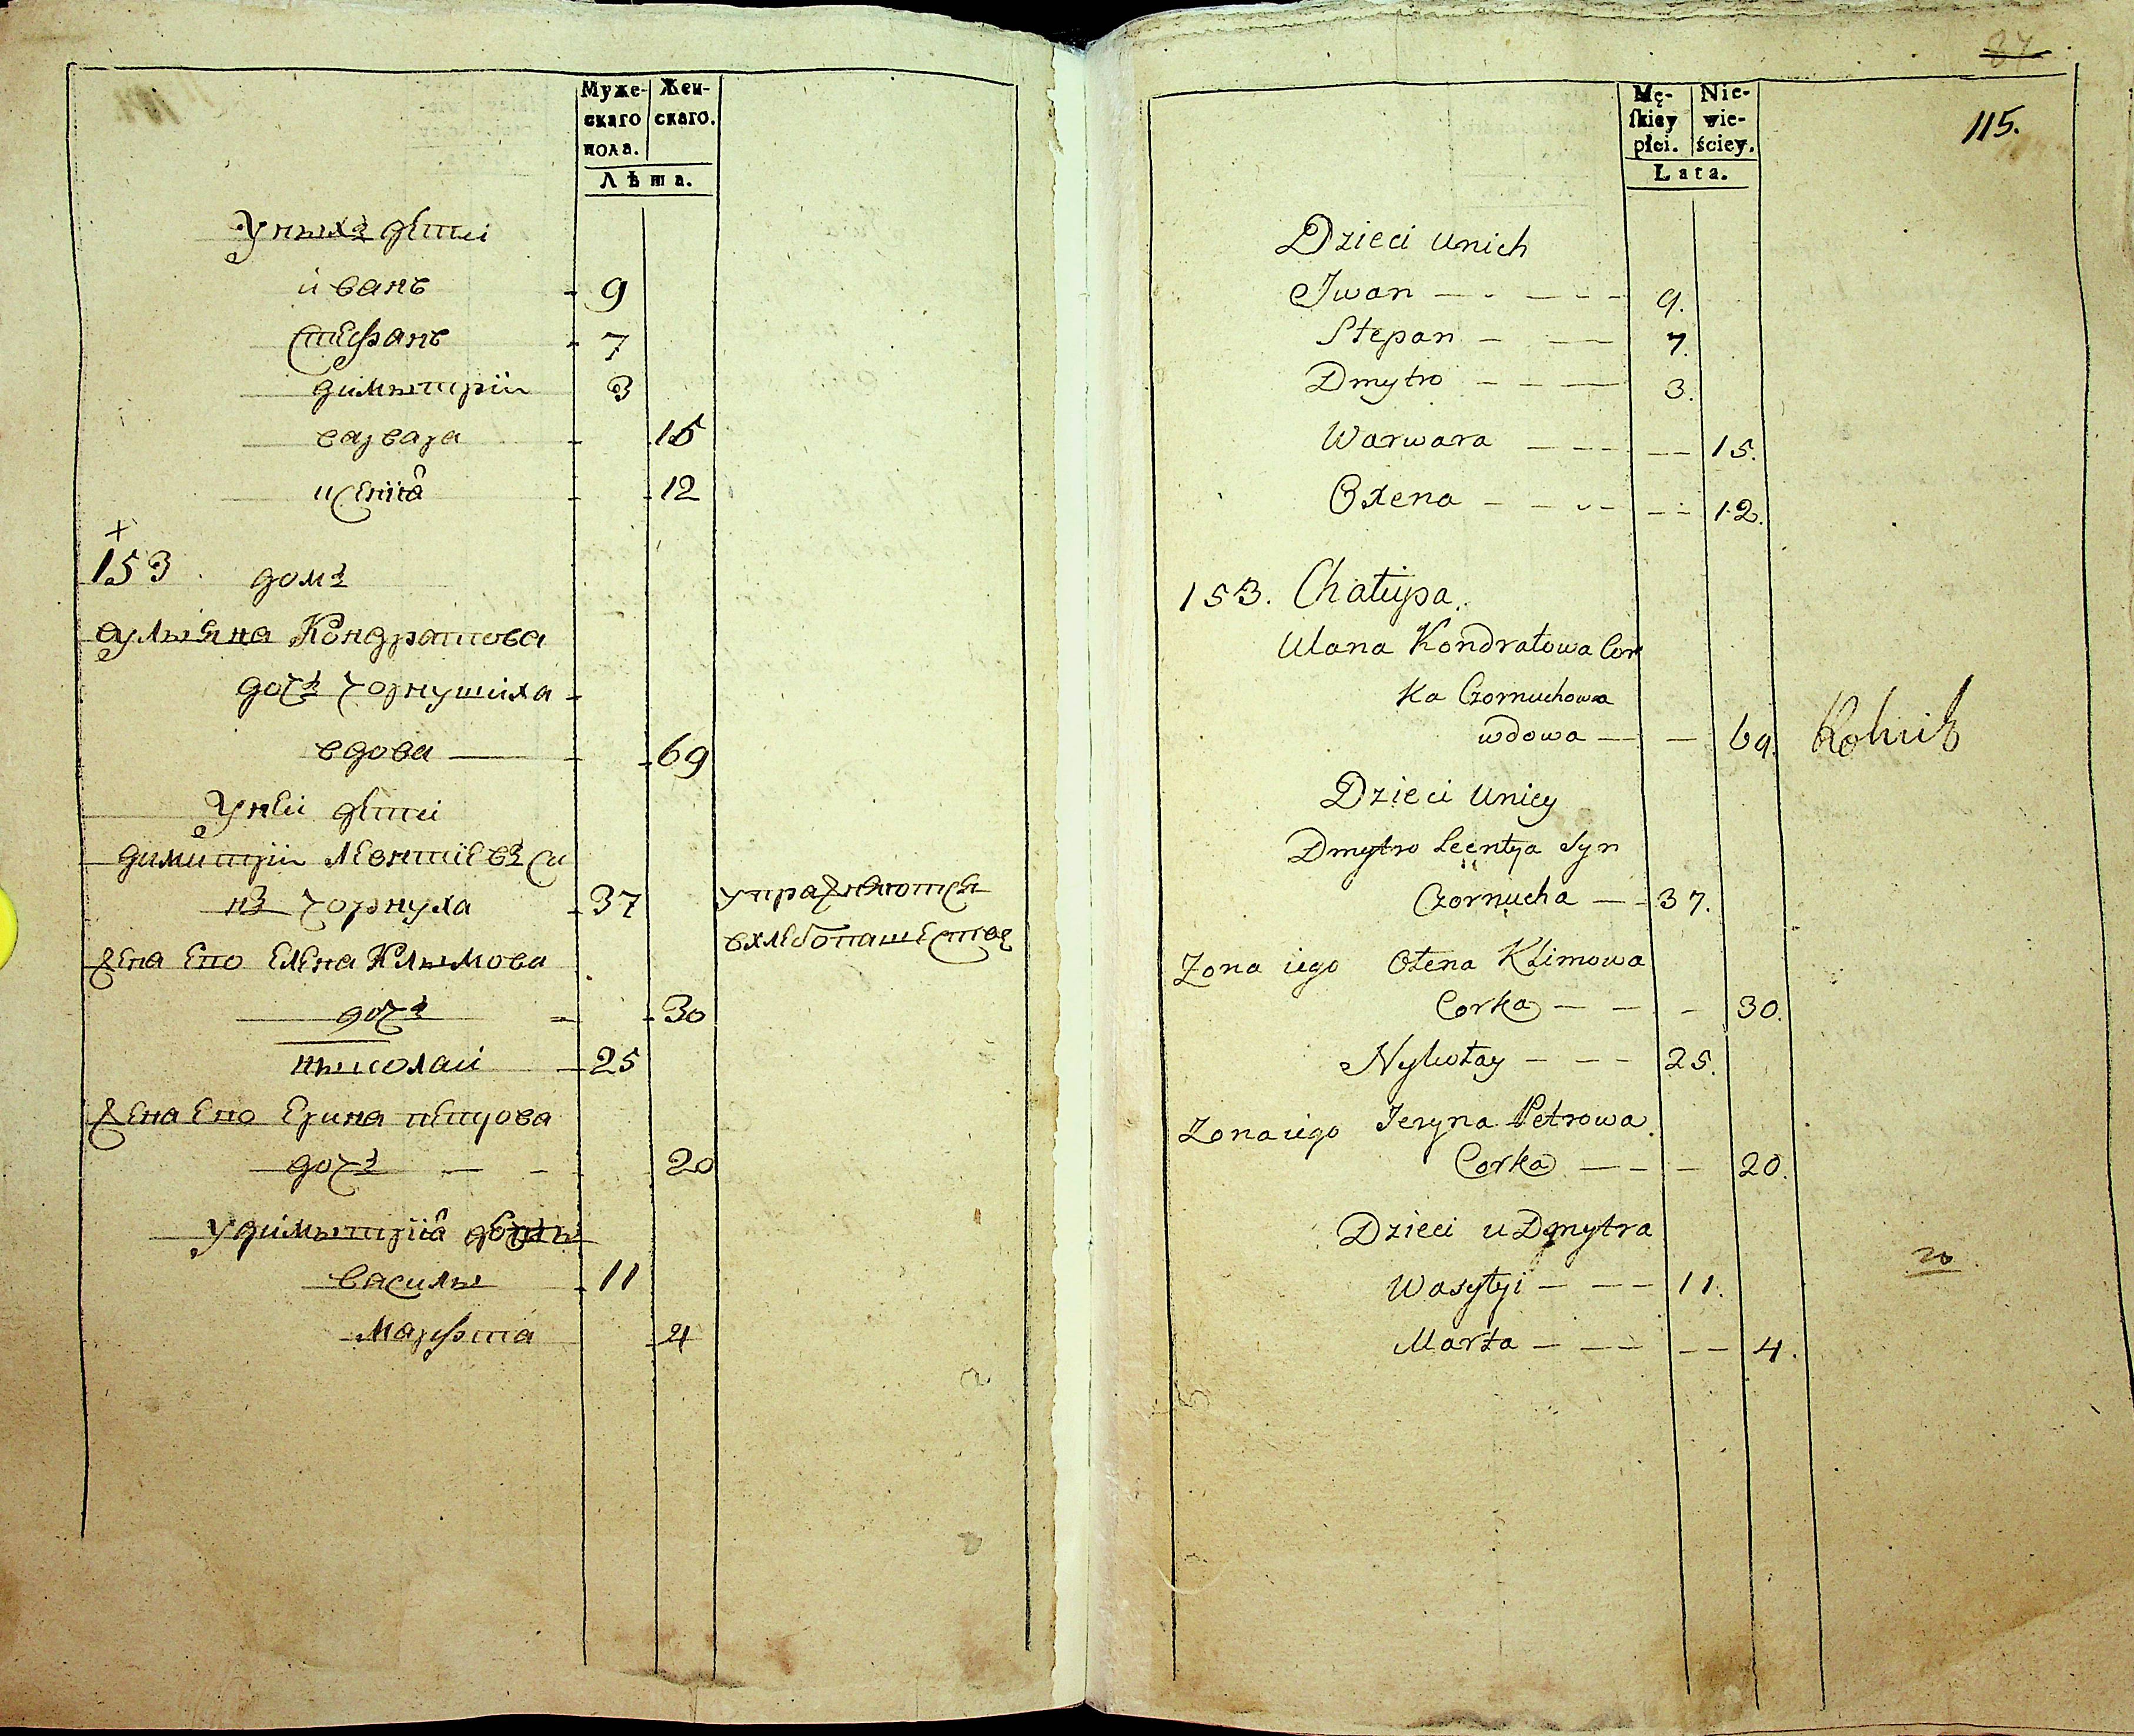 Муже-
скаго
пола.
Жен-
скаго.
Лѣта.
Унихъ дети
иванъ - 9
стефанъ - 7
димитрiи 3
варвара - 15
ксенiа - - 12
+
153. домъ
аульяна Кондратова
дочъ чорнушиха -
вдова — - - 69
Унеи дети
димитрiи Левтiевъ си
нъ чорнуха - 37
упражняютси
вхлебопашестве
жена его елена Климова
дочъ = - 30
николаи - 25
жена его ерина петрова
дочъ — - - 20
Удимитрiа
василь - 11
Марфта - 4
37
115.
Mę-
skiey
płci.
Nie-
wie-
ściey.
Lata.
Dzieci unich
Iwan — - — - - 9.
Stepan — — — 7.
Dmytro — — — 3.
Warwara — — — — — 15.
Oxena — — - - — - 12.
153. Chałupa.
Ulana Kondratowa Cor
ka Czornuchowa
wdowa — — 69. Rolnik
Dzieci uniey
Dmytro Leentya Syn
Czornucha — - 37.
Zona iego Ołena Klimowa
Corka — — - - 30.
Nykołay — — — 25.
Zona iego Jeryna Petrowa
Corka — — — 20.
Dzieci u Dmytra
Wasylyi — — — 11.
Marta — — — — — 4.